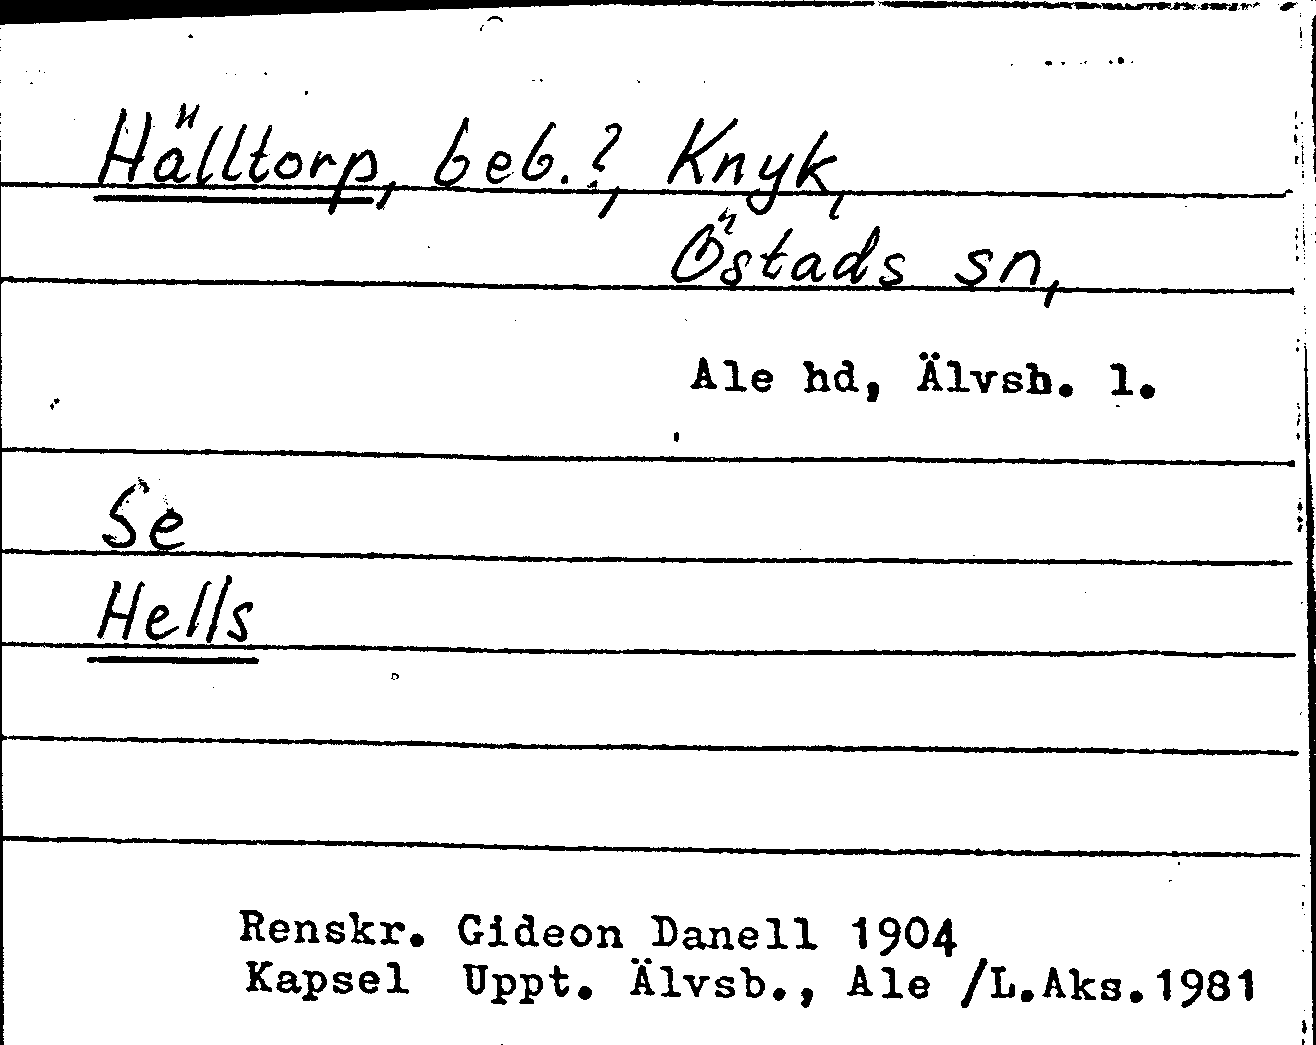 Hälltorp, beb.?, Knyk,
Östads sn,
Ale hd, Älvsb. l.
Se
Hells
Renskr. Gideon Danell 1904
Kapsel Uppt. Älvsb., Ale /L.Aks.1981